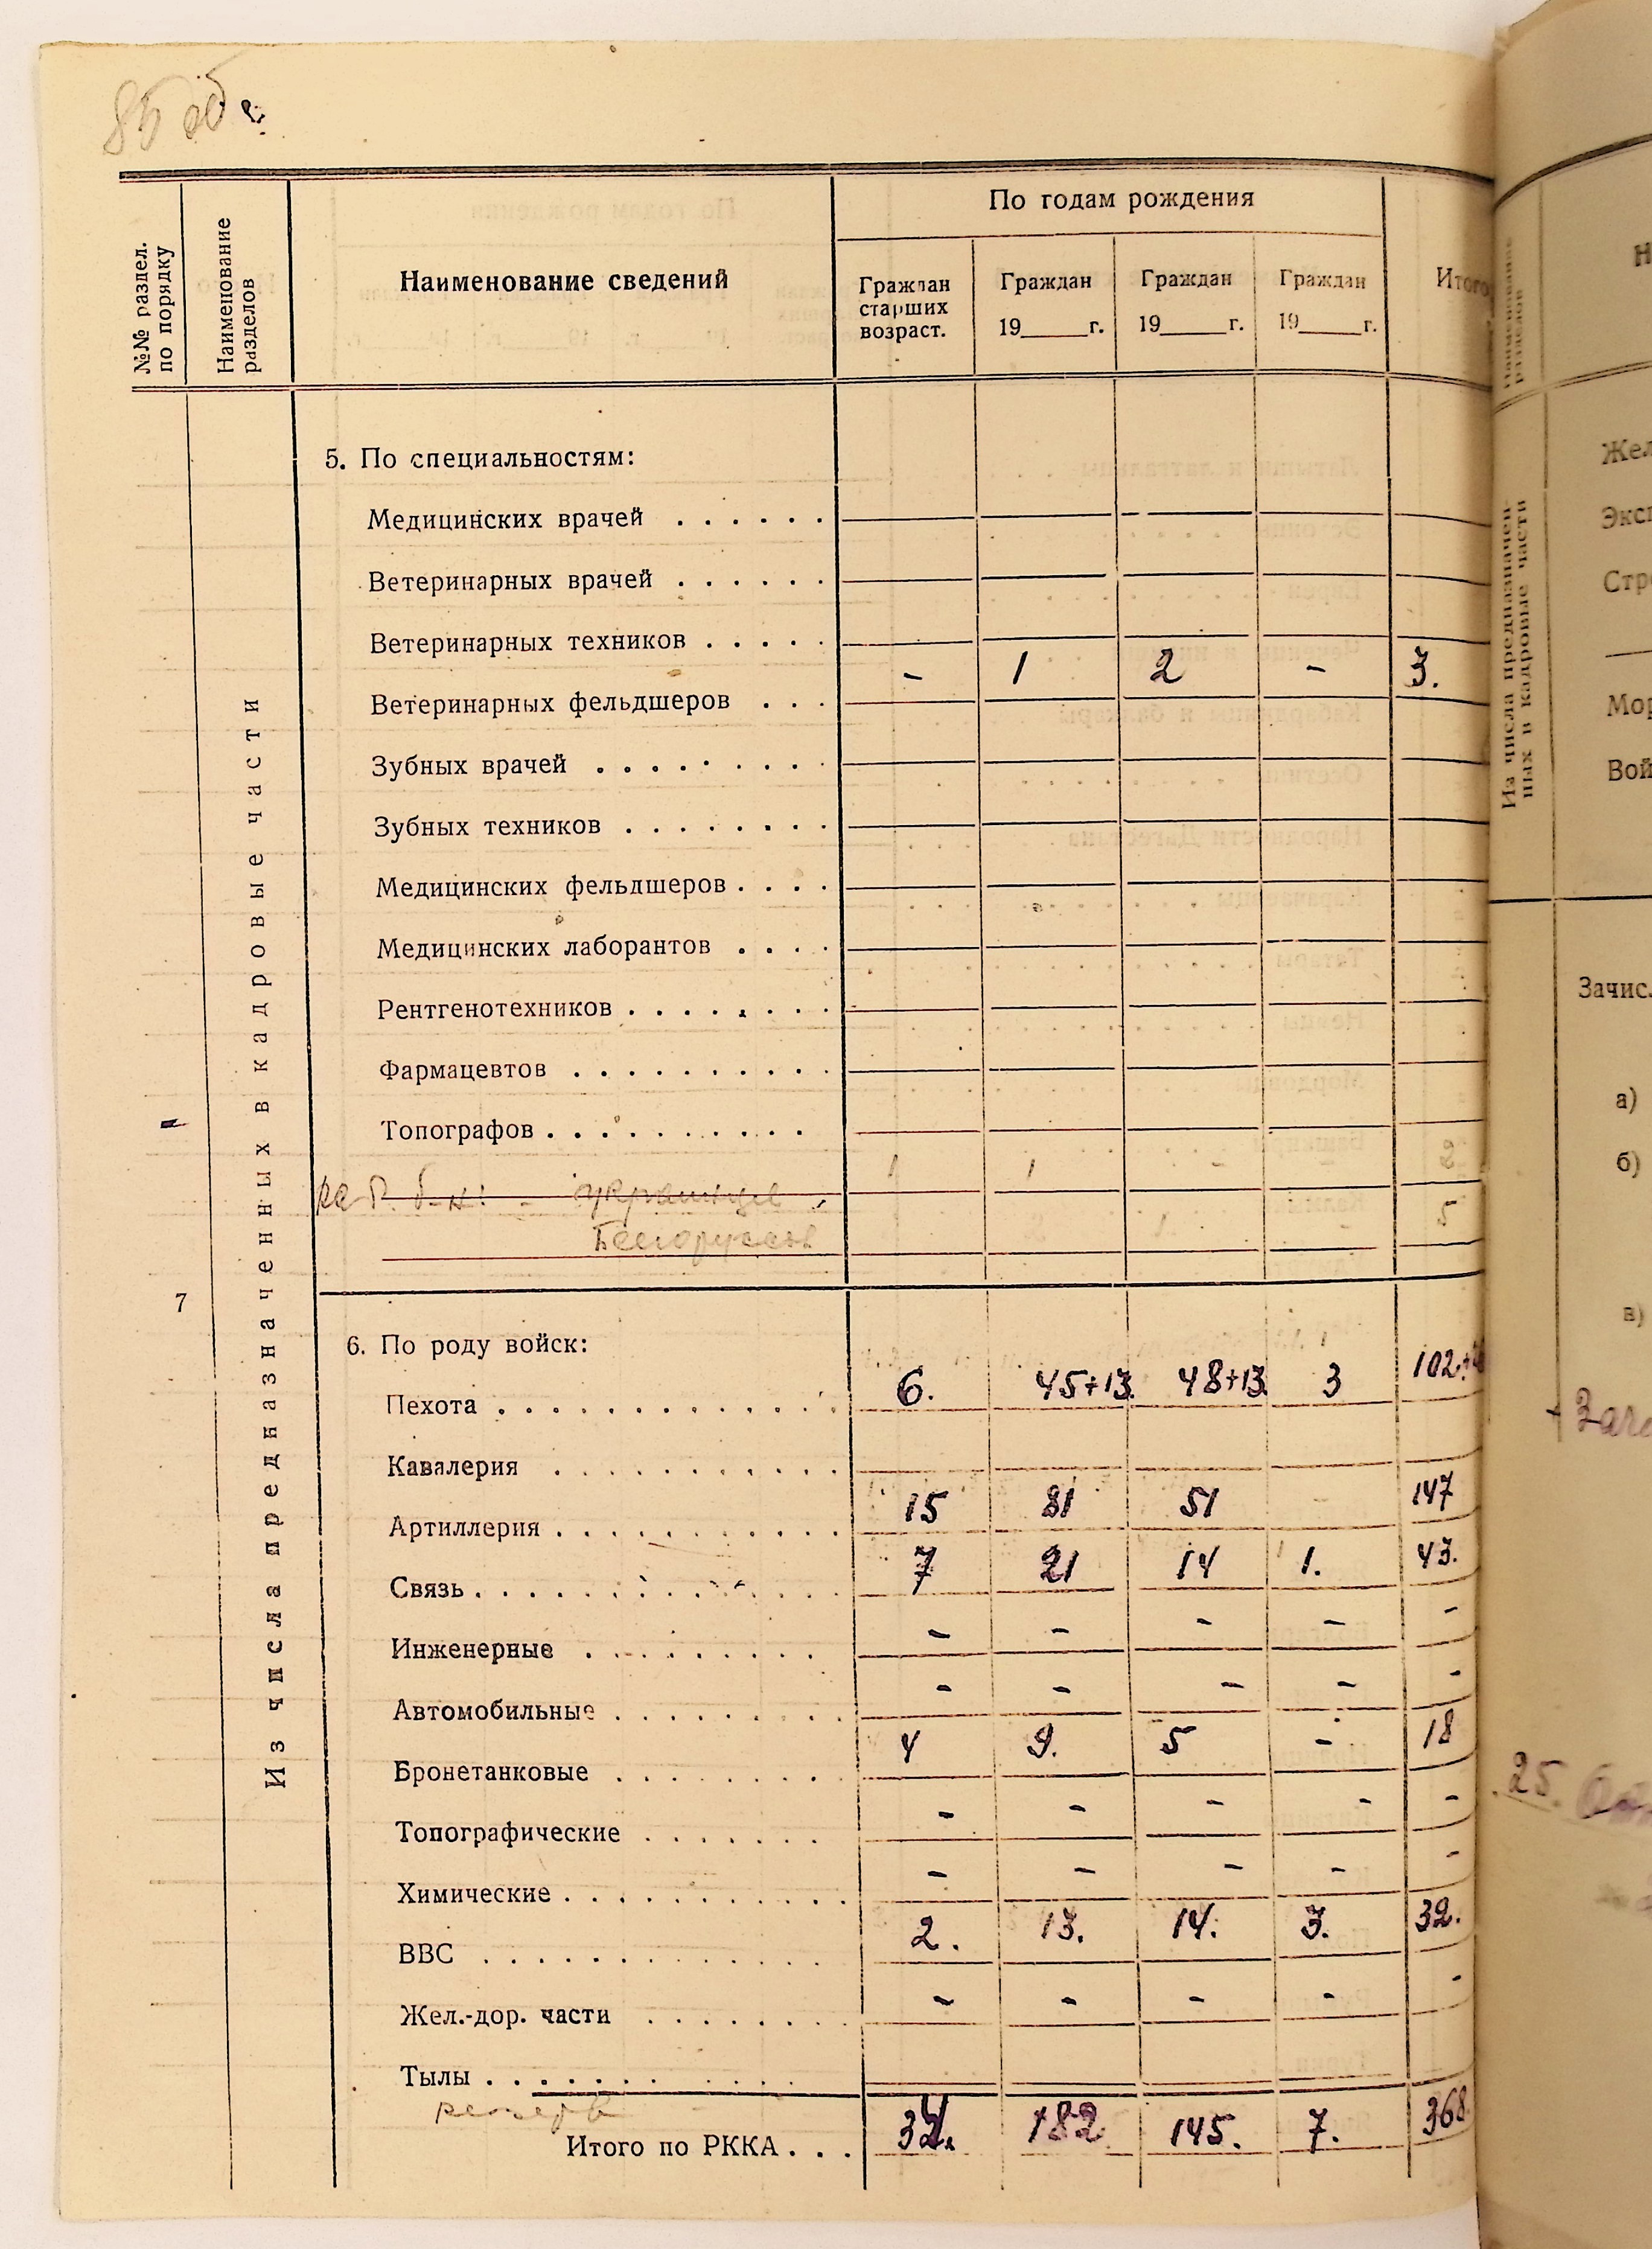 85 об
№№ раздел. по порядку
Наименование разделов
Наименование сведений
По годам рождения
Граждан старших возраст.
Граждан 19____г.
Граждан 19____г.
Граждан 19____г.
Итого
7
Из числа предназначенных в кадровые части
5. По специальностям:
Медицинских врачей . . . . . .
Ветеринарных врачей . . . . . .
Ветеринарных техников . . . . .
- 1 2 - 3.
Ветеринарных фельдшеров . . .
Зубных врачей . . . . . . . . .
Зубных техников . . . . . . . .
Медицинских фельдшеров . . . .
Медицинских лаборантов . . . .
Рентгенотехников . . . . . . . .
Фармацевтов . . . . . . . . . .
Топографов . . . . . . . . . .
1 1 - - 2
украинцев
Белоруссов
5
6. По роду войск:
Пехота . . . . . . . . . . . . . 6. 45+13. 48+13. 3 102+
Кавалерия . . . . . . . . . . .
Артиллерия . . . . . . . . . . . 15 81 51 147
Связь . . . . . . . . . . . . . 7 21 14 1. 43.
Инженерные . . . . . . . . . - - - - -
Автомобильные . . . . . . . . . - - - - -
Бронетанковые . . . . . . . . 4 9. 5 - 18
Топографические . . . . . . . - - - - -
Химические . . . . . . . . . . . - - - - -
ВВС . . . . . . . . . . . . . 2. 13. 14. 3. 32.
Жел.-дор. части . . . . . . . . - - - - -
Тылы . . . . . . . . . . .
резерв
Итого по РККА . . . 34. 182 145. 7. 368.
Наименование разделов
Н
Из числа предназначенных в кадровые части
Жел
Эксп
Стр
Мор
Вой
Зачис.
а)
б)
в)
25.